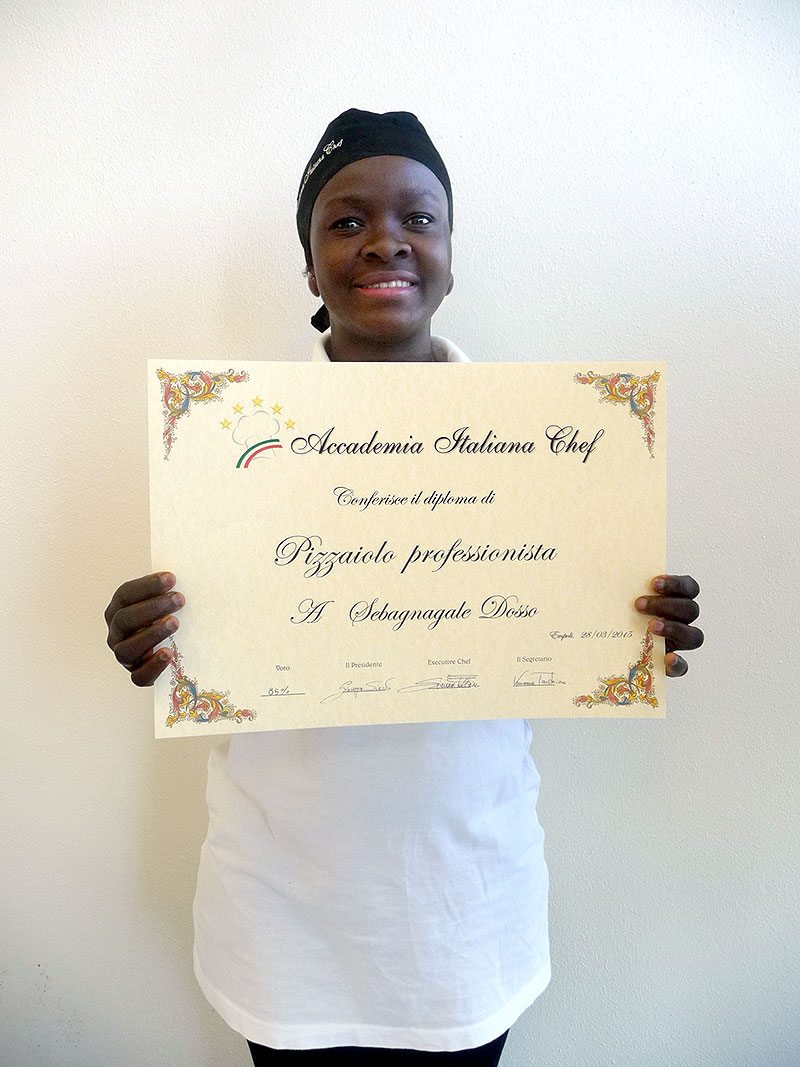 Italiana Chef
Accademia Italiana Chef
Conferisce il diploma di
Pizzaiolo professionista
A Sebagnagale Dosso
Empoli, 28/03/2015
Voto Il Presidente Executive Chef Il Segretario
85%